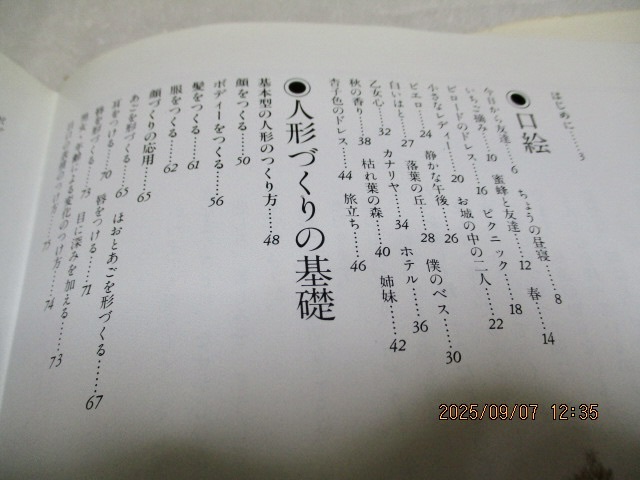 はじめに……3
◉口絵
今日から友達……6 ちょうの昼寝……8
いちご摘み……10 蜜蜂と友達……12 春……14
ビロードのドレス……16 ピクニック……18
小さなレディー……20 お城の中の二人……22
ピエロ……24 静かな午後……26
白いはと……27 落葉の丘……28 僕のベス……30
乙女心……32 カナリヤ……34 ホテル……36
秋の香り……38 枯れ葉の森……40 姉妹……42
杏子色のドレス……44 旅立ち……46
◉人形づくりの基礎
基本型の人形のつくり方……48
顔をつくる……50
ボディーをつくる……56
髪をつくる……61
服をつくる……62
顔づくりの応用……65
あごを形づくる……65 ほおとあごを形づくる……67
耳をつける……70 唇をつける……71
唇を形づくる……73 目に深みを加える……73
による変化のつけ方……74
のつけ方……75
2025/09/07 12:35